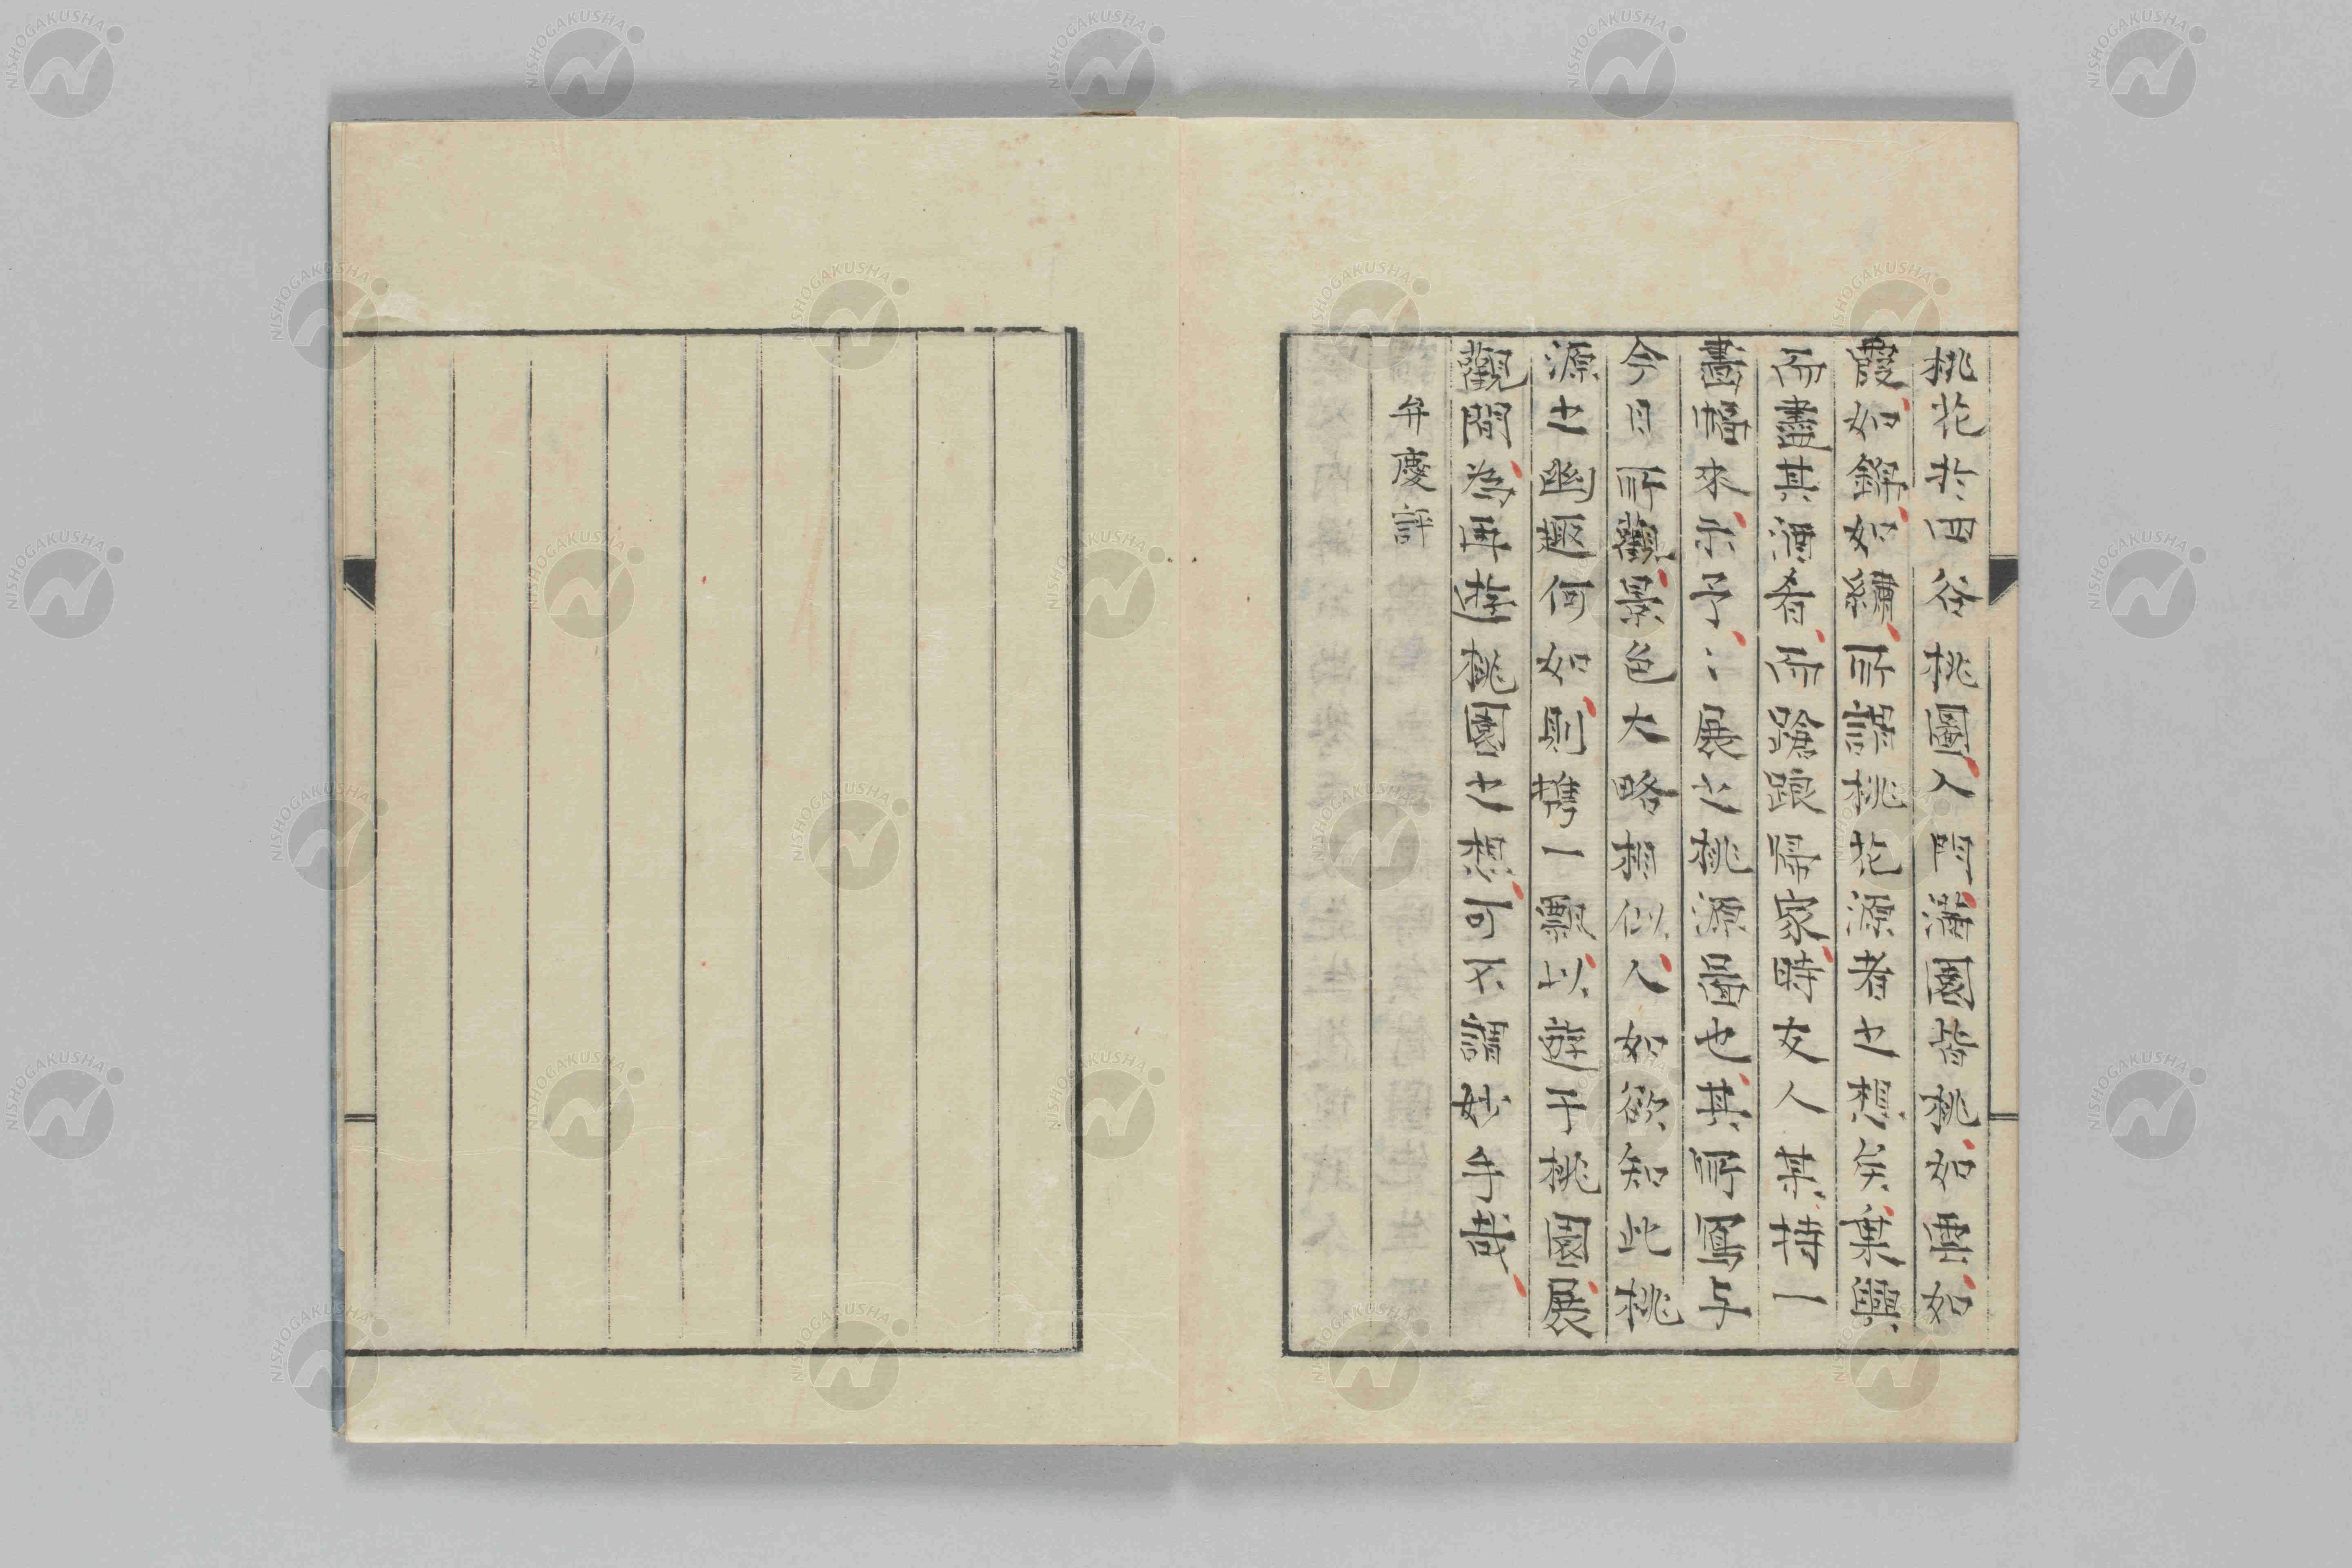 桃花於四谷桃圃入門滿園皆桃如雲如
霞如錦如繡所謂桃花源者也想矣乗興
而盡其酒肴而蹌踉帰家時友人某持一
畫幅來示予〻展之桃源圖也其所寫与
今日所觀景色大略相似人如欲知此桃
源之幽趣何如則携一瓢以遊于桃園展
觀間為再遊桃園之想可不謂妙手哉
弁慶評
NISHOGAKUSHA